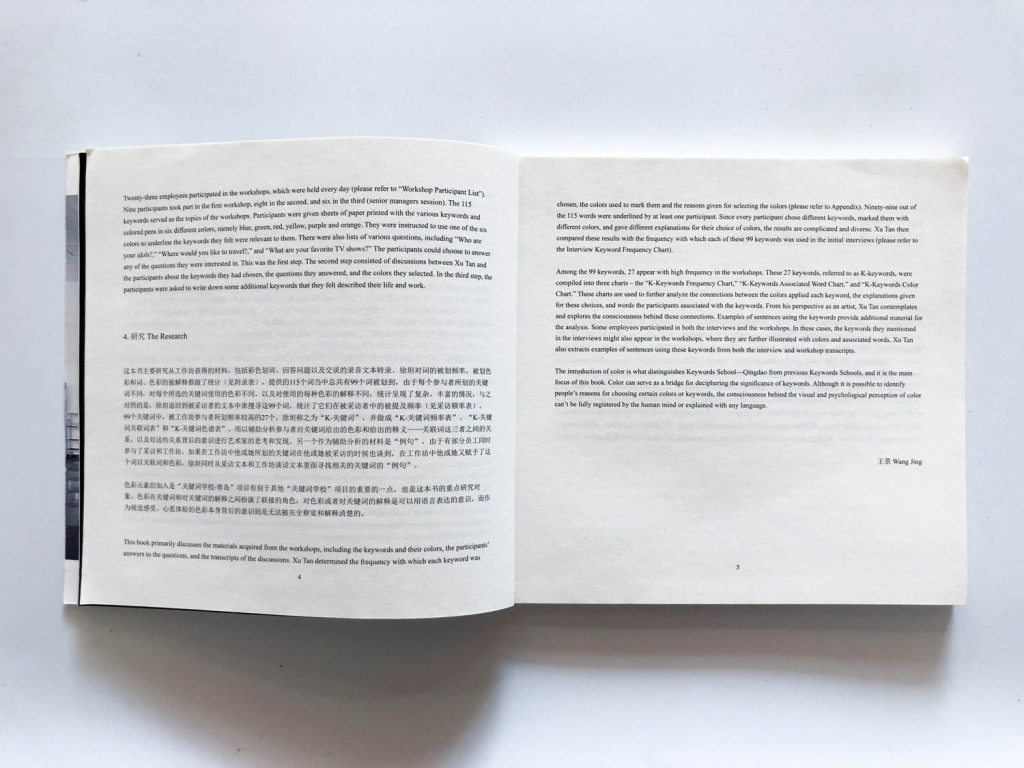 Twenty-three employees participated in the workshops, which were held every day (please refer to “Workshop Participant List”).
Nine participants took part in the first workshop, eight in the second, and six in the third (senior managers session). The 115
keywords served as the topics of the workshops. Participants were given sheets of paper printed with the various keywords and
colored pens in six different colors, namely blue, green, red, yellow, purple and orange. They were instructed to use one of the six
colors to underline the keywords they felt were relevant to them. There were also lists of various questions, including “Who are
your idols?,” “Where would you like to travel?,” and “What are your favorite TV shows?” The participants could choose to answer
any of the questions they were interested in. This was the first step. The second step consisted of discussions between Xu Tan and
the participants about the keywords they had chosen, the questions they answered, and the colors they selected. In the third step, the
participants were asked to write down some additional keywords that they felt described their life and work.
4. 研究 The Research
这本书主要研究从工作坊获得的材料，包括彩色划词、回答问题以及交谈的录音文本转录。徐坦对词的被划频率、被划色
彩和词、色彩的被解释都做了统计（见附录表）。提供的115个词当中总共有99个词被划到，由于每个参与者所划的关键
词不同、对每个所选的关键词使用的色彩不同、以及对使用的每种色彩的解释不同，统计呈现了复杂、丰富的情况。与之
对照的是，徐坦返回到被采访者的文本中来搜寻这99个词，统计了它们在被采访者中的被提及频率（见采访频率表）。
99个关键词中，被工作坊参与者所划频率较高的27个，徐坦称之为“K-关键词”，并做成“K-关键词频率表”、“K-关键
词关联词表”和“K-关键词色谱表”，用以辅助分析参与者对关键词给出的色彩和给出的释义——关联词这三者之间的关
系，以及对这些关系背后的意识进行艺术家的思考和发现。另一个作为辅助分析的材料是“例句”，由于有部分员工同时
参与了采访和工作坊，如果在工作坊中他或她所划的关键词在他或她被采访的时候也谈到，在工作坊中他或她又赋予了这
个词以关联词和色彩，徐坦同时从采访文本和工作坊谈话文本里面寻找相关的关键词的“例句”。
色彩元素的加入是“关键词学校-青岛”项目有别于其他“关键词学校”项目的重要的一点，也是这本书的重点研究对
象。色彩在关键词和对关键词的解释之间扮演了联接的角色，对色彩或者对关键词的解释是可以用语言表达的意识，而作
为视觉感受、心里体验的色彩本身背后的意识则是无法被完全察觉和解释清楚的。
This book primarily discusses the materials acquired from the workshops, including the keywords and their colors, the participants’
answers to the questions, and the transcripts of the discussions. Xu Tan determined the frequency with which each keyword was
4
chosen, the colors used to mark them and the reasons given for selecting the colors (please refer to Appendix). Ninety-nine out of
the 115 words were underlined by at least one participant. Since every participant chose different keywords, marked them with
different colors, and gave different explanations for their choice of colors, the results are complicated and diverse. Xu Tan then
compared these results with the frequency with which each of these 99 keywords was used in the initial interviews (please refer to
the Interview Keyword Frequency Chart).
Among the 99 keywords, 27 appear with high frequency in the workshops. These 27 keywords, referred to as K-keywords, were
compiled into three charts – the “K-Keywords Frequency Chart,” “K-Keywords Associated Word Chart,” and “K-Keywords Color
Chart.” These charts are used to further analyze the connections between the colors applied each keyword, the explanations given
for these choices, and words the participants associated with the keywords. From his perspective as an artist, Xu Tan contemplates
and explores the consciousness behind these connections. Examples of sentences using the keywords provide additional material for
the analysis. Some employees participated in both the interviews and the workshops. In these cases, the keywords they mentioned
in the interviews might also appear in the workshops, where they are further illustrated with colors and associated words. Xu Tan
also extracts examples of sentences using these keywords from both the interview and workshop transcripts.
The introduction of color is what distinguishes Keywords School—Qingdao from previous Keywords Schools, and it is the main
focus of this book. Color can serve as a bridge for deciphering the significance of keywords. Although it is possible to identify
people’s reasons for choosing certain colors or keywords, the consciousness behind the visual and psychological perception of color
can’t be fully registered by the human mind or explained with any language.
王景 Wang Jing
5